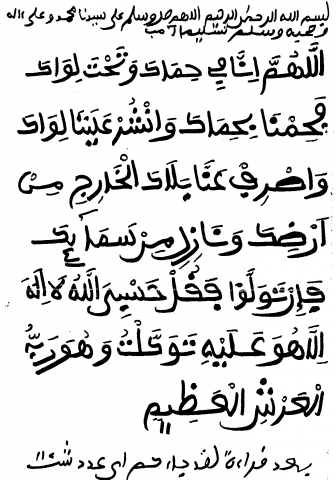 بسم الله الرحمن الرحيم اللهم صل وسلم على سيدنا محمد وعلى ءاله
وصحبه وسلم تسليما
اللَّهُمَّ إِنَّا فِي حِمَاكَ وَتَحْتَ لِوَاكَ
فَحْمِنَا بِحِمَاكَ وَانْشُرْ عَلَيْنَا لِوَاكَ
وَاصْرِفْ عَنَّا بَلَاكَ الْخَارِجِ مِنْ
أَرْضِكَ وَنَازِلِ مِنْ سَمَائِكَ
فَإِنْ تَوَلَّوْا فَقُلْ حَسْبِيَ اللَّهُ لَا إِلَهَ
إِلَّا هُوَ عَلَيْهِ تَوَكَّلْتُ وَهُوَ رَبُّ
الْعَرْشِ الْعَظِيمِ
بعد قراءة لقد جاءكم اي عدد شئت